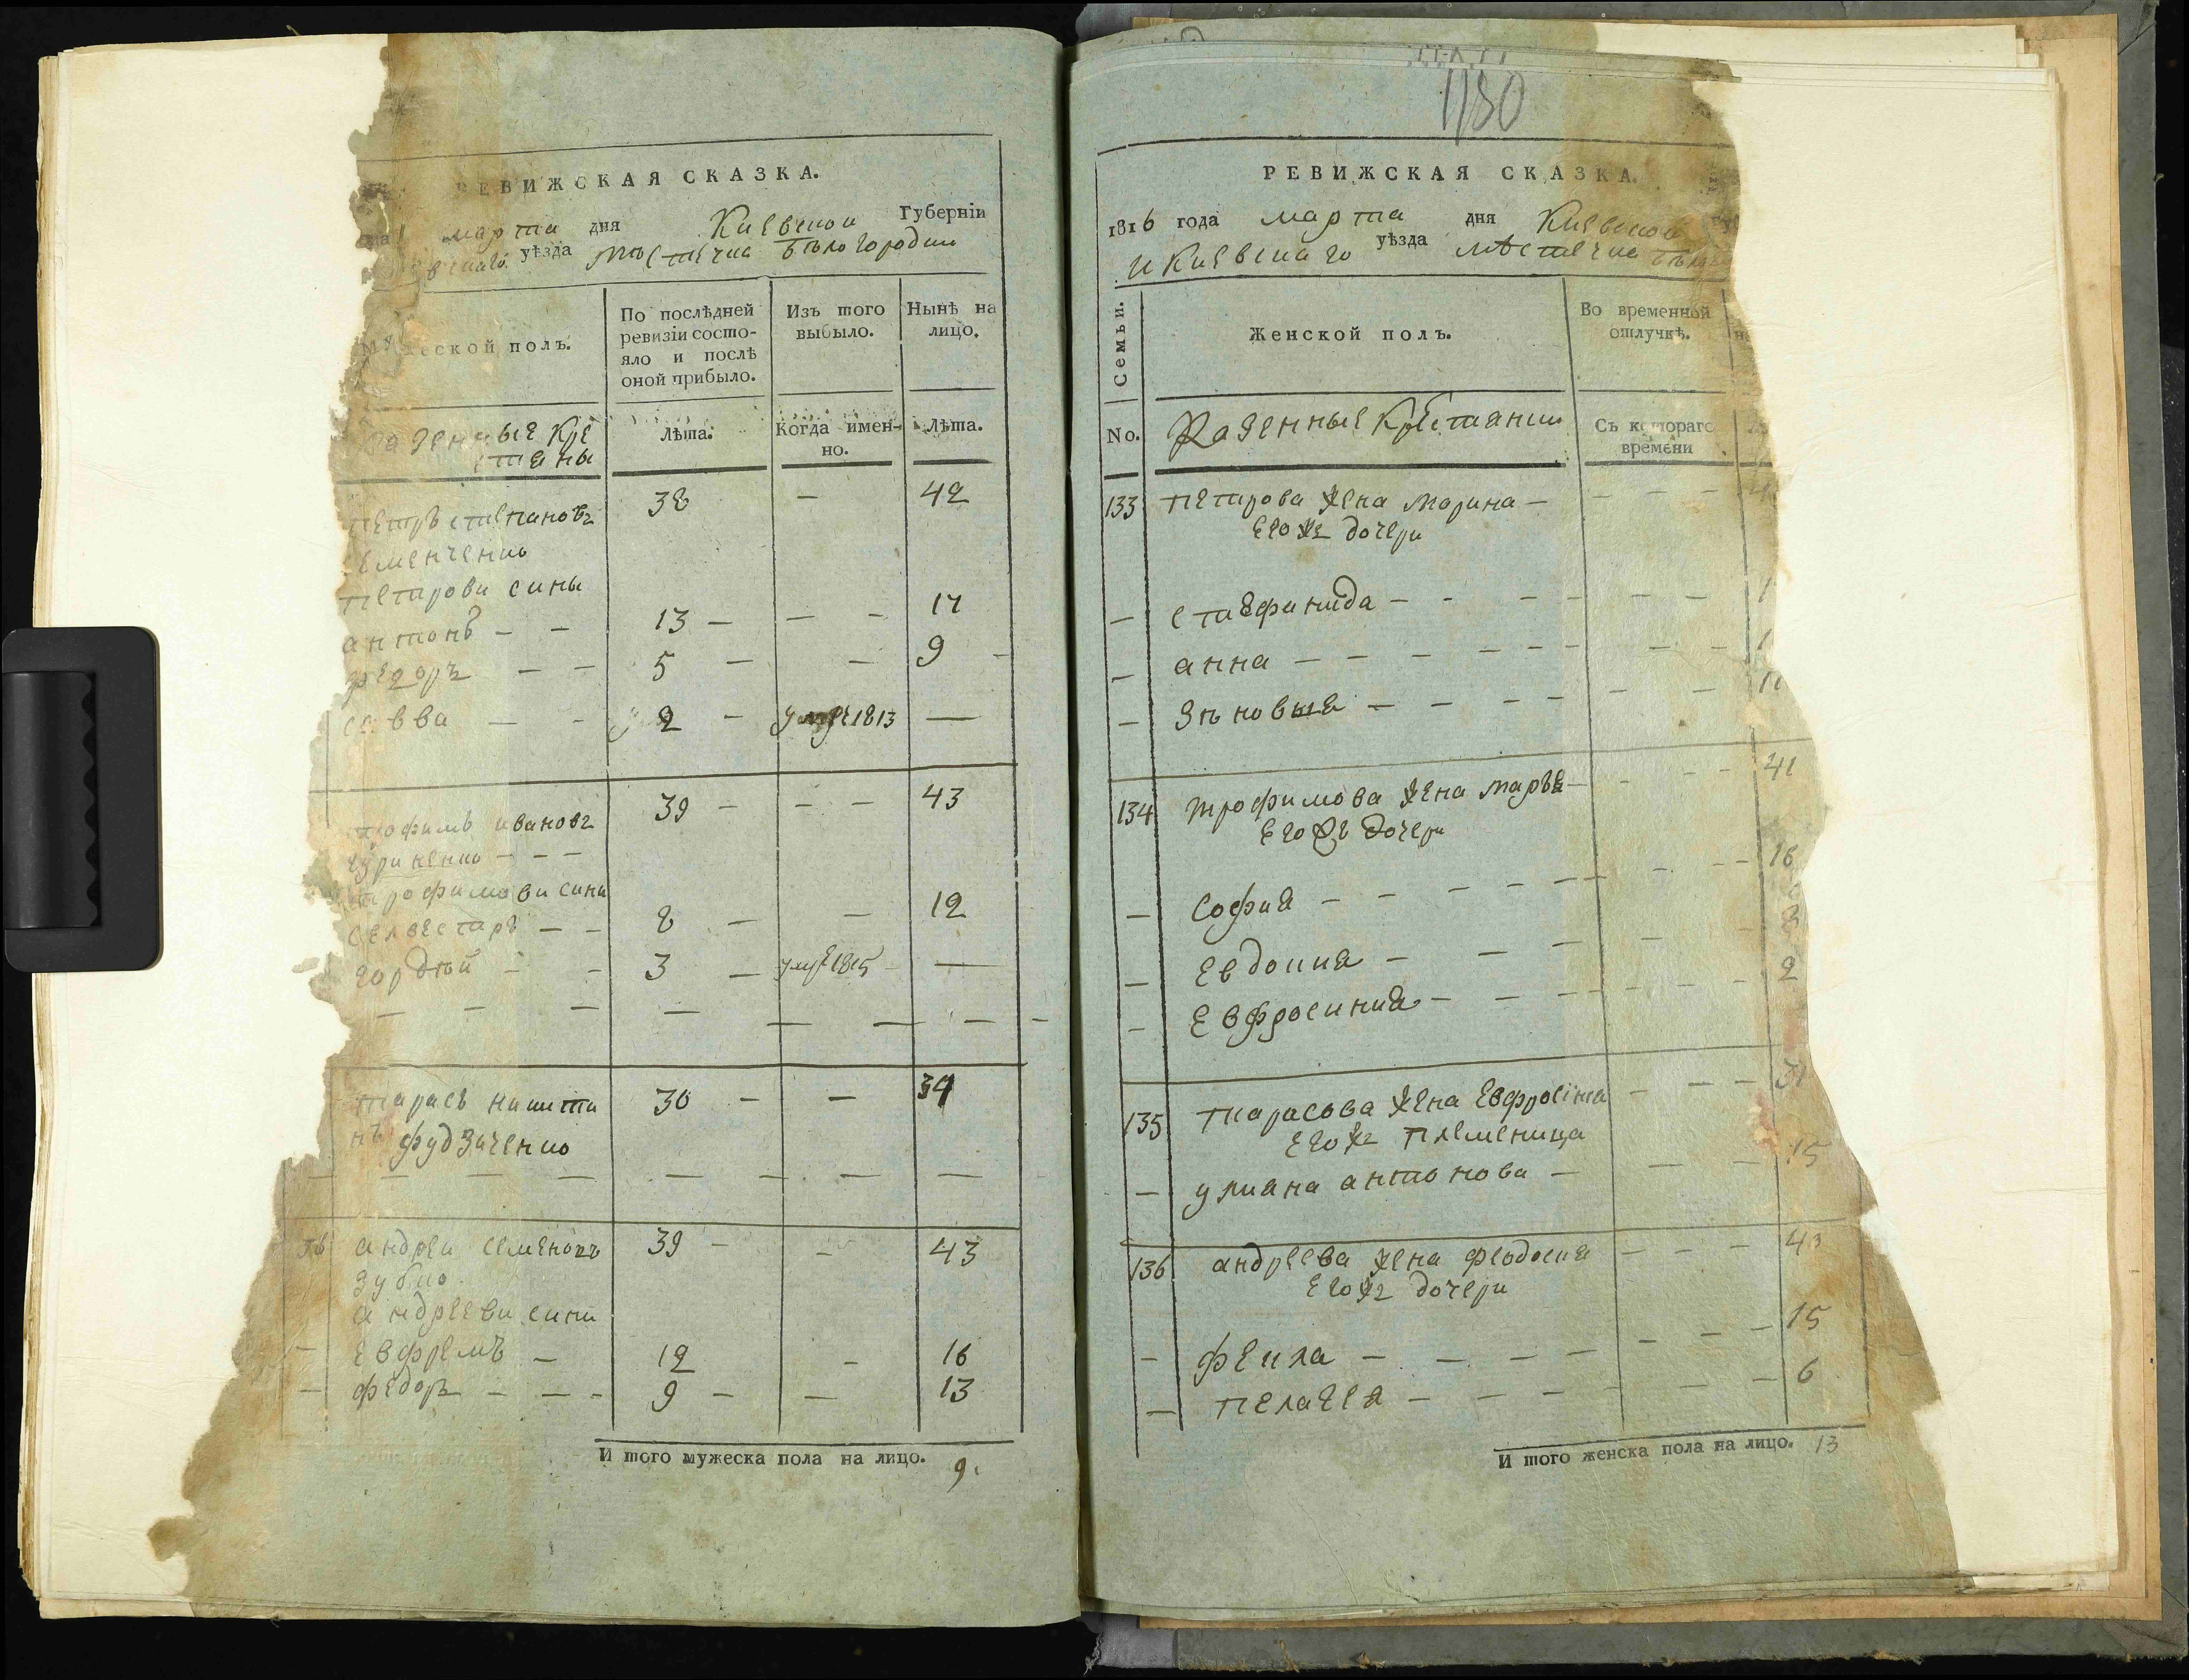 РЕВИЖСКАЯ СКАЗКА.
марта дня Киевской Губерніи
уѣзда мѣстечка Бѣлогородки
ской полъ.
По послѣдней ревизіи состо-
яло и послѣ
оной прибыло.
Изъ того
выбыло.
Нынѣ на
лицо.
Казенные Кре
стяны
Лѣта.
Когда имен-
но.
Лѣта.
Петръ степановъ 38 — 42
Петрови сины
антонъ — — 13 — — — 17
федоръ — — 5 — — 9 —
савва — — 2 — умре 1813 —
трофимъ ивановъ 39 — — — 43
трофимови сини
селвестръ — — 8 — — 12
гордѣй — — 3 — умре 1815 —
— — — — — — — —
тарасъ никити 30 — — 34
нъ
— — — — — — — —
андрей семеновъ 39 — — 43
зубко
андрееви сини
— Евфремъ — 12 — 16
— федоръ — — — 9 — — 13
И того мужеска пола на лицо. 9.
1180
РЕВИЖСКАЯ СКАЗКА.
1816 года марта дня Киевской
и Киевскаго уѣзда мѣстечка
Семьи.
Женской полъ.
Во временной
отлучкѣ.
No.
Казенные Крестянки
Съ котораго
времени
133 Петрова жена Марина — — — —
Его же дочери
— стаефанида — — — — —
— анна — — — — — — — —
— Зѣновыя — — — — — —
134 трофимова жена марья — — — — 41
Его же дочери
— София — — — — — — — — 16
— Евдокиа — — — —
— Евфросиниа — — — — — — — 2
135 тарасова жена Евфросіниа — — —
Его же племеница
— улиана антонова — — — 15
136 андреева жена феодосиа — — — 43
Его же дочери
— фекла — — — — — — — 15
— пелагея — — — — — — 6
И того женска пола на лицо. 13